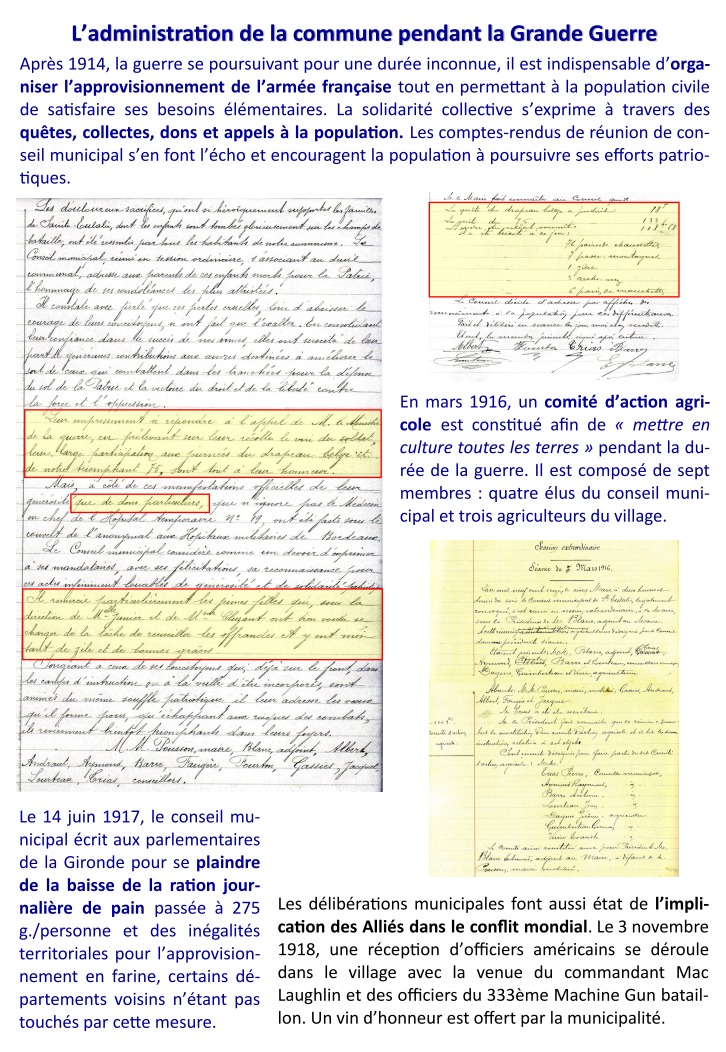 L'administration de la commune pendant la Grande Guerre
Après 1914, la guerre se poursuivant pour une durée inconnue, il est indispensable d'orga-
niser l'approvisionnement de l'armée française tout en permettant à la population civile
de satisfaire ses besoins élémentaires. La solidarité collective s'exprime à travers des
quêtes, collectes, dons et appels à la population. Les comptes-rendus de réunion de con-
seil municipal s'en font l'écho et encouragent la population à poursuivre ses efforts patrio-
tiques.
Les douloureux sacrifices, qu'ont si héroïquement supportés les familles
de Sainte Eulalie, dont les enfants sont tombés glorieusement sur les champs de
bataille, ont été ressentis par tous les habitants de notre commune. Le
Conseil municipal, réuni en session ordinaire, s'associant au deuil
communal, adresse aux parents de ces enfants morts pour la Patrie,
l'hommage de ses condoléances les plus attristées.
Il constate avec fierté que ces pertes cruelles, loin d'abaisser le
courage de leurs concitoyens, n'ont fait que l'exalter. En consolidant
leur confiance dans le succès de nos armes, elles ont suscité de leur
part de généreuses contributions aux œuvres destinées à améliorer le
sort de ceux qui combattent dans les tranchées pour la défense
du sol de la Patrie et la victoire du droit et de la liberté contre
la force et l'oppression.
Leur empressement à répondre à l'appel de M. le Ministre
de la guerre, en prélevant sur leur récolte le vin du soldat,
leur large participation aux journées du drapeau belge et
de notre triomphant 75, sont tout à leur honneur.
Mais, à côté de ces manifestations officielles de leur
générosité que de dons particuliers, que n'ignore pas le Médecin
en chef de l'Hôpital temporaire N° 19, ont été faits sous le
couvert de l'anonymat aux Hôpitaux militaires de Bordeaux.
Le Conseil municipal considère comme un devoir d'exprimer
à ses mandataires, avec ses félicitations, sa reconnaissance pour
ces actes infiniment louables de générosité et de solidarité
Il remercie particulièrement les jeunes filles qui, sous la
direction de Mlle Junior et de Mme Elégant ont bien voulu se
charger de la tâche de recueillir les offrandes et y ont mon-
tré tant de zèle et de bonnes grâces.
Songeant à ceux de ses concitoyens qui, déjà sur le front, dans
les camps d'instruction ou à la veille d'être incorporés, sont
animés du même souffle patriotique, il leur adresse les vœux
qu'il forme pour, qu'échappant aux risques des combats,
ils reviennent bientôt triomphants dans leurs foyers.
M. M. Pousson, maire, Blanc, adjoint, Albert,
Andraut, Aymond, Barre, Faugère, Fourton, Gassies, Jacquet
Lourteau, Crias, conseillers.
M. le Maire fait connaître au Conseil que
La quête du drapeau belge a produit
La quête du 75
76 paires de chaussettes
1 gilet
6 paires de
Le Conseil décide d'adresser par affiches des
remerciements à la population pour
Fait et délibéré en séance les jour, mois et an
Albert
Crias
En mars 1916, un comité d'action agri-
cole est constitué afin de « mettre en
culture toutes les terres » pendant la du-
rée de la guerre. Il est composé de sept
membres : quatre élus du conseil muni-
cipal et trois agriculteurs du village.
Session extraordinaire
Séance du 5 Mars 1916.
L'an mil neuf cent seize, le cinq Mars à
heures du soir le Conseil municipal de Ste Eulalie, légalement
convoqué, s'est réuni en session extraordinaire,
sous la Présidence de M. Blanc, adjoint au Maire.
Étaient présents M.M. Blanc, adjoint,
Aymond, Barre et Lourteau,
Absents M.M. Pousson, maire, Andraut,
Albert, Faugère et Jacquet
M. Crias a été élu secrétaire.
M. le Président fait connaître que la réunion a pour
but la constitution d'un comité d'action agricole
Comité d'action
agricole.
Crias Pierre, Conseiller municipal,
Aymond Raymond,
Barre Antoine,
Lourteau Jean,
Le Comité ainsi constitué aura pour Président M.
Blanc Edmond, adjoint au Maire, à défaut de M.
Pousson, maire
Le 14 juin 1917, le conseil mu-
nicipal écrit aux parlementaires
de la Gironde pour se plaindre
de la baisse de la ration jour-
nalière de pain passée à 275
g./personne et des inégalités
territoriales pour l'approvision-
nement en farine, certains dé-
partements voisins n'étant pas
touchés par cette mesure.
Les délibérations municipales font aussi état de l'impli-
cation des Alliés dans le conflit mondial. Le 3 novembre
1918, une réception d'officiers américains se déroule
dans le village avec la venue du commandant Mac
Laughlin et des officiers du 333ème Machine Gun batail-
lon. Un vin d'honneur est offert par la municipalité.